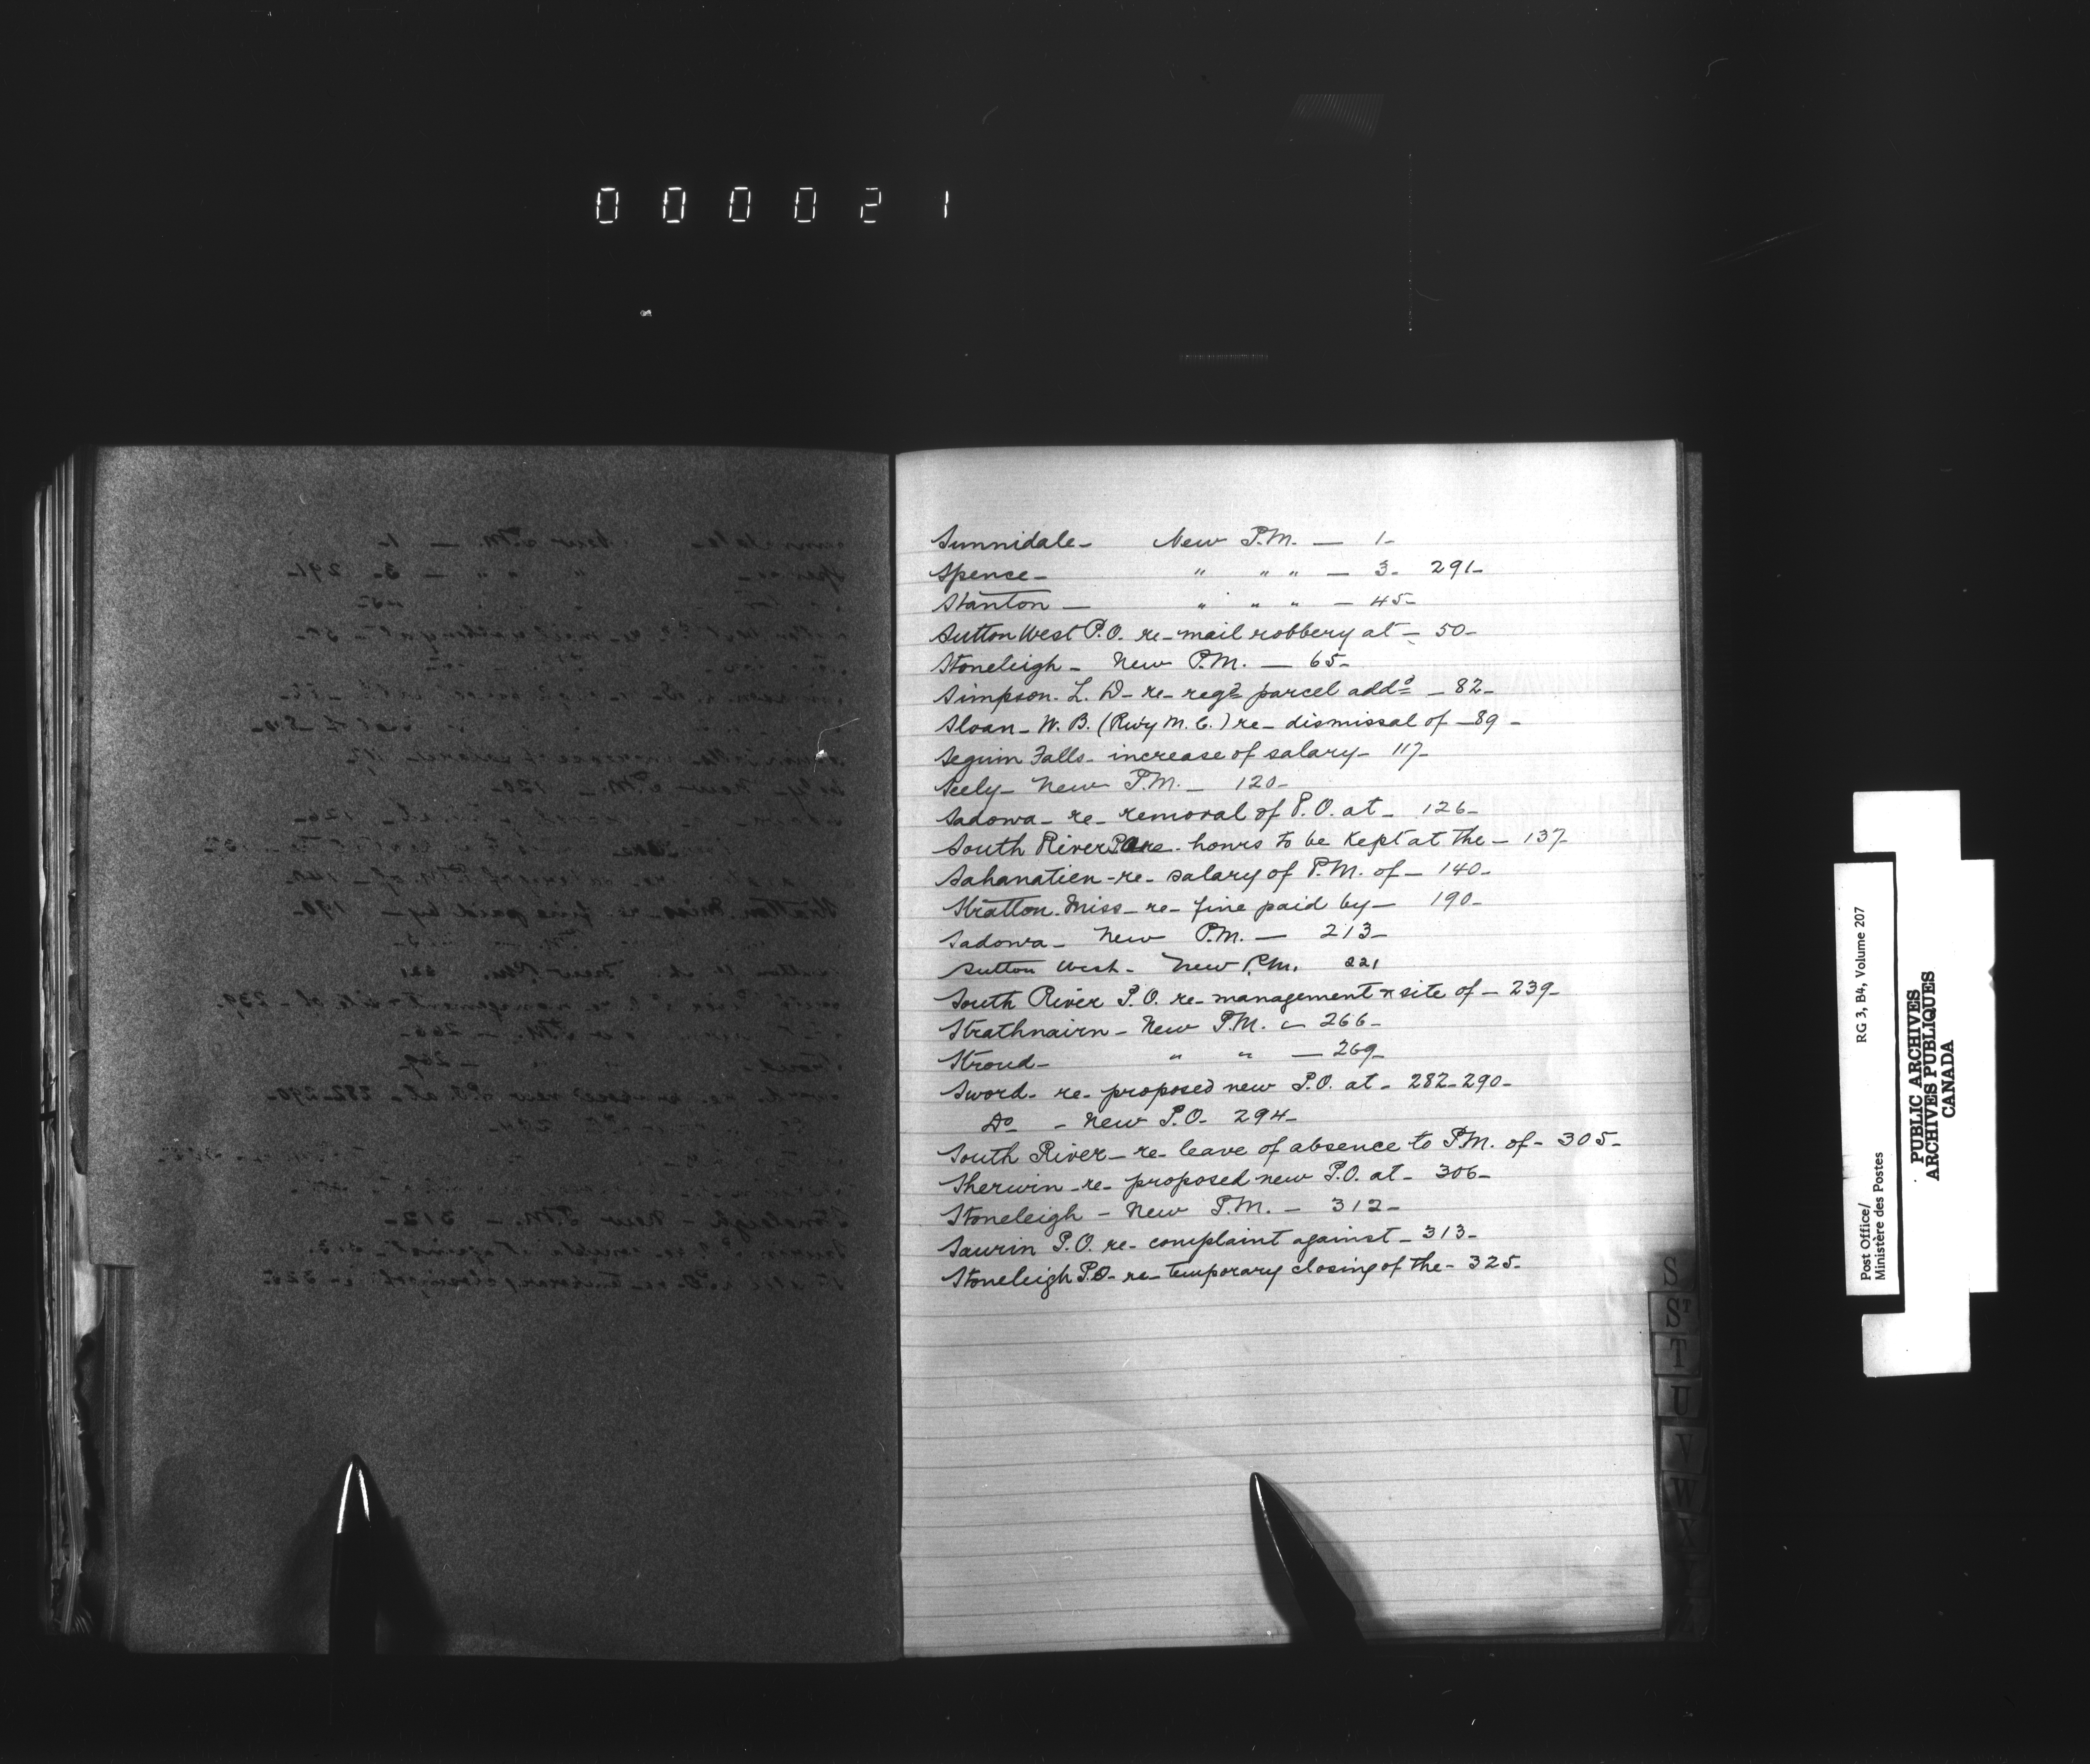 000021
Sunnidale - New P.M. — 1-
Spence - " " " — 3- 291-
Stanton — " " " — 45-
Sutton West P.O. re- mail robbery at - 50-
Stoneleigh - New P.M. — 65-
Simpson. L. D- re- regd parcel addd - 82-
Sloan - W. B. (Rwy M. C.) re- dismissal of - 89 -
Seguin Falls- increase of salary- 117-
Seely- New P.M. - 120-
Sadowa- re- removal of P.O. at- 126-
South River P.O. re- hours to be kept at the - 137-
Sahanatien - re- salary of P.M. of - 140-
Stratton. Miss - re- fine paid by - 190-
Sadowa - New P.M. — 213-
Sutton West- New P.M. 221
South River P.O. re- management & site of - 239-
Strathnairn - New P.M. - 266-
Stroud- " " — 269-
Sword- re- proposed new P.O. at- 282-290-
Do - New P.O- 294-
South River- re- leave of absence to P.M. of- 305-
Sherwin - re- proposed new P.O. at- 306-
Stoneleigh - New P.M. - 312-
Saurin P.O. re- complaint against - 313-
Stoneleigh P.O- re- temporary closing of the- 325-
S
ST
T
U
V
W
X
Post Office/ RG 3, B4, Volume 207
Ministère des Postes
PUBLIC ARCHIVES
ARCHIVES PUBLIQUES
CANADA